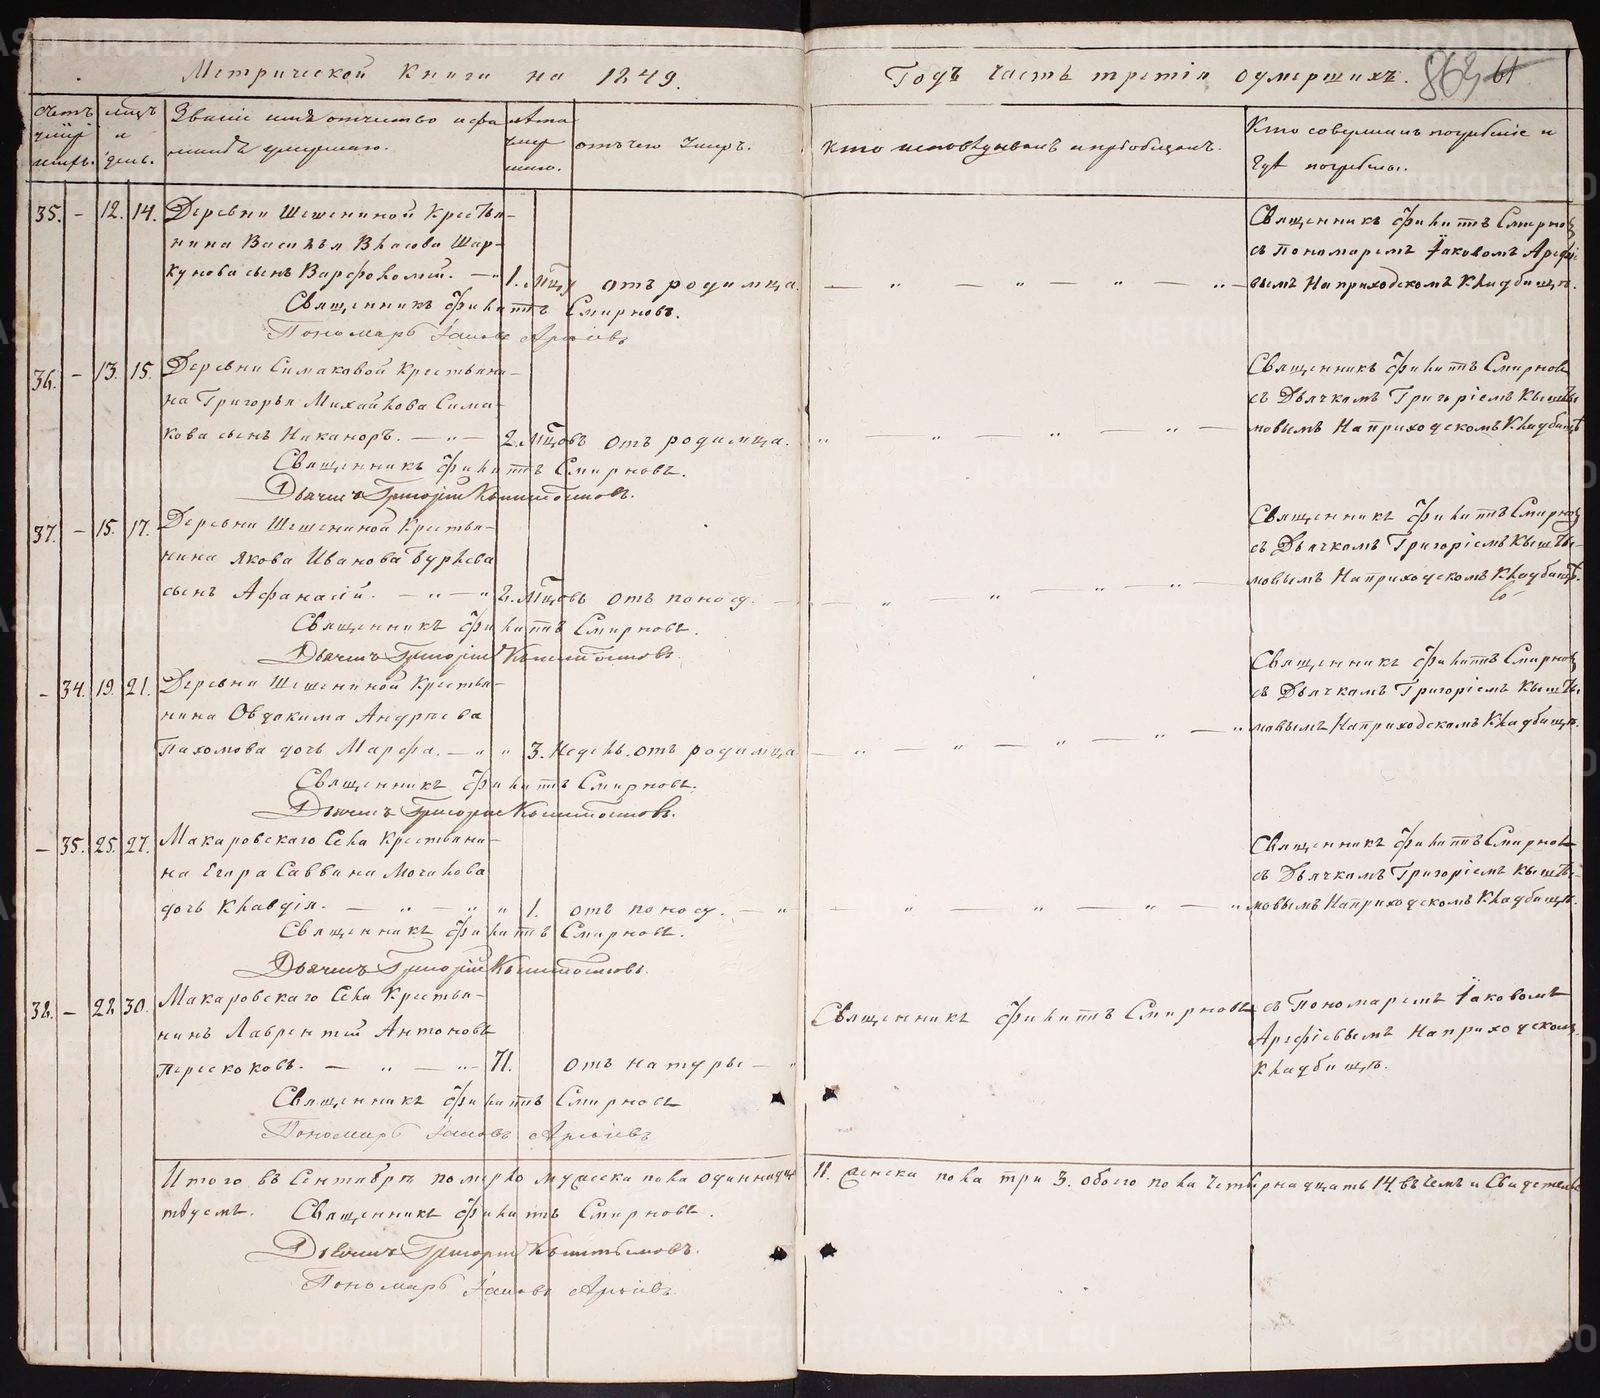 Метрической Книги на 1849.
Годъ часть третія о умершихъ.
862
61
Счетъ умер шихъ.
Мцъ и день.
Званіе имя отчество и фа
миліѣ умершаго.
Лѣта умер шаго.
отъ чего Умеръ.
Кто исповѣдывалъ и пріобщалъ.
Кто совершалъ погребеніе и
гдѣ погребены.
35. – 12. 14. Деревни Шешениной Крестья-
нина Василья Власова Шар-
кунова сынъ Варфоломѣй. — 1. Мцъ отъ родимца.
Священникъ Филиппъ Смирновъ.
Пономарь Іаковъ Арефіевъ
Священникъ Филиппъ Смирновъ
съ пономаремъ Іаковомъ Арефіе
вымъ На приходскомъ Кладбищѣ.
36. – 13. 15. Деревни Симаковой Крестьяни-
на Григорья Михайлова Сима-
кова сынъ Никаноръ. — „ — 2. Мцовъ отъ родимца.
Священникъ Филиппъ Смирновъ.
Дьячекъ Григорій Кыштымовъ.
Священникъ Филиппъ Смирновъ
съ Дьячкомъ Григоріемъ Кышты
мовымъ На приходскомъ Кладбищѣ
37. – 15. 17. Деревни Шешениной Крестья-
нина Якова Иванова Бурлева
сынъ Афанасій. — „ — „ 2. Мцовъ отъ поносу.
Священникъ Филиппъ Смирновъ.
Дьячекъ Григорій Кыштымовъ
Священникъ Филиппъ Смирновъ
съ Дьячкомъ Григоріемъ Кышты-
мовымъ На приходскомъ Кладбищѣ.
– 34. 19. 21. Деревни Шешениной Крестья-
нина Овдокима Андреева
Пахомова дочь Марфа. — „ „ 3. Недель. отъ родимца
Священникъ Филиппъ Смирновъ.
Дьячекъ Григорій Кыштымовъ.
Священникъ Филиппъ Смирновъ
съ Дьячкомъ Григоріемъ Кышты
мовымъ На приходскомъ Кладбищѣ.
– 35. 25. 27. Макаровскаго Села Крестьяни-
на Егора Саввина Мочалова
дочь Клавдія. — „ — „ „ 1. отъ поносу. — „
Священникъ Филиппъ Смирновъ.
Дьячекъ Григорій Кыштымовъ.
Священникъ Филиппъ Смирновъ
съ Дьячкомъ Григоріемъ Кышты-
мовымъ На приходскомъ Кладбищѣ.
38. – 28. 30. Макаровскаго Села Крестья-
нинъ Лаврентій Антоновъ
Перескоковъ. — „ — „ 71. отъ натуры — „
Священникъ Филиппъ Смирновъ
Пономарь Іаковъ Арефіевъ
Священникъ Филиппъ Смирновъ съ Пономаремъ Іаковомъ
Арефіевымъ На приходскомъ
Кладбищѣ.
Итого въ Сентябрѣ померло мужеска пола одиннадцать 11. женска пола три 3. обоего пола четырнадцать 14. въ чемъ и Свидетельс
твуемъ. Священникъ Филиппъ Смирновъ.
Дьячекъ Григорій Кыштымовъ.
Пономарь Іаковъ Арефіевъ
METRIKI.GASO-URAL.RU